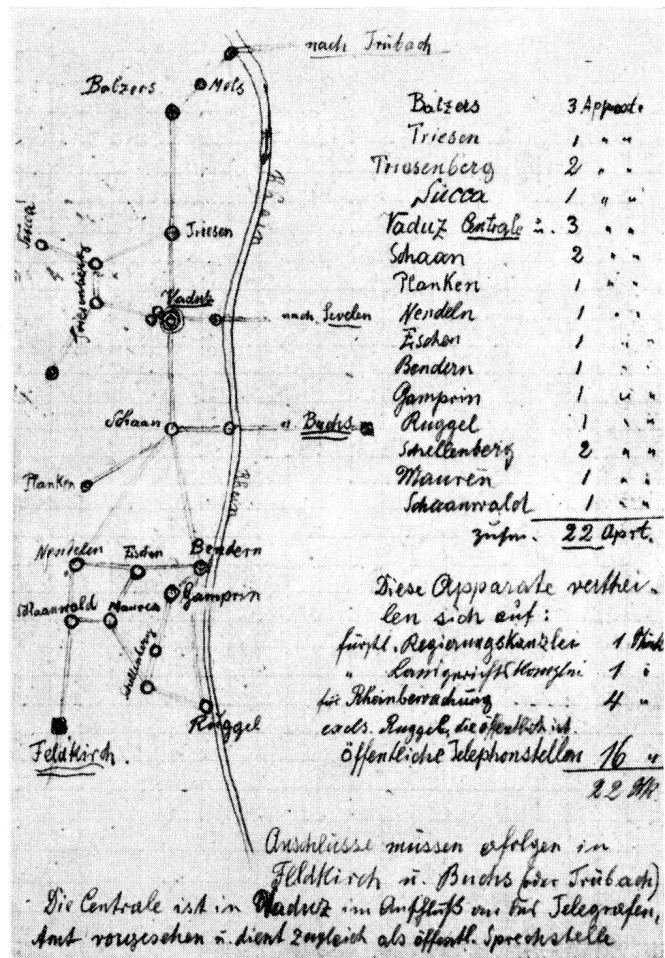 nach Trübach
Balzers
Mels
Rhein
Sücca
Triesen
Triesenberg
Vaduz
nach Sevelen
Schaan
n. Buchs
Planken
Rhein
Nendeln
Eschen
Bendern
Gamprin
Schaanwald
Mauren
Schellenberg
Ruggel
Feldkirch.
Balzers 3 Apparate
Triesen 1 " "
Triesenberg 2 " "
Sücca 1 " "
Vaduz Centrale u. 3 " "
Schaan 2 " "
Planken 1 " "
Nendeln 1 " "
Eschen 1 " "
Bendern 1 " "
Gamprin 1 " "
Ruggel 1 " "
Schellenberg 2 " "
Mauren 1 " "
Schaanwald 1 " "
zusm. 22 Aprt.
Diese Apparate verthei-
len sich auf:
fürstl. Regierungskanzlei 1 Stück
" Landgerichtskanzlei 1 "
für Rheinbewachung 4 "
excls. Ruggel, die öffentlich ist
öffentliche Telephonstellen 16 "
22 Stk.
Anschlüsse müssen erfolgen in
Feldkirch u. Buchs (oder Trübach)
Die Centrale ist in Vaduz im Anschluß an das Telegrafen-
Amt vorgesehen u. dient zugleich als öffentl. Sprechstelle